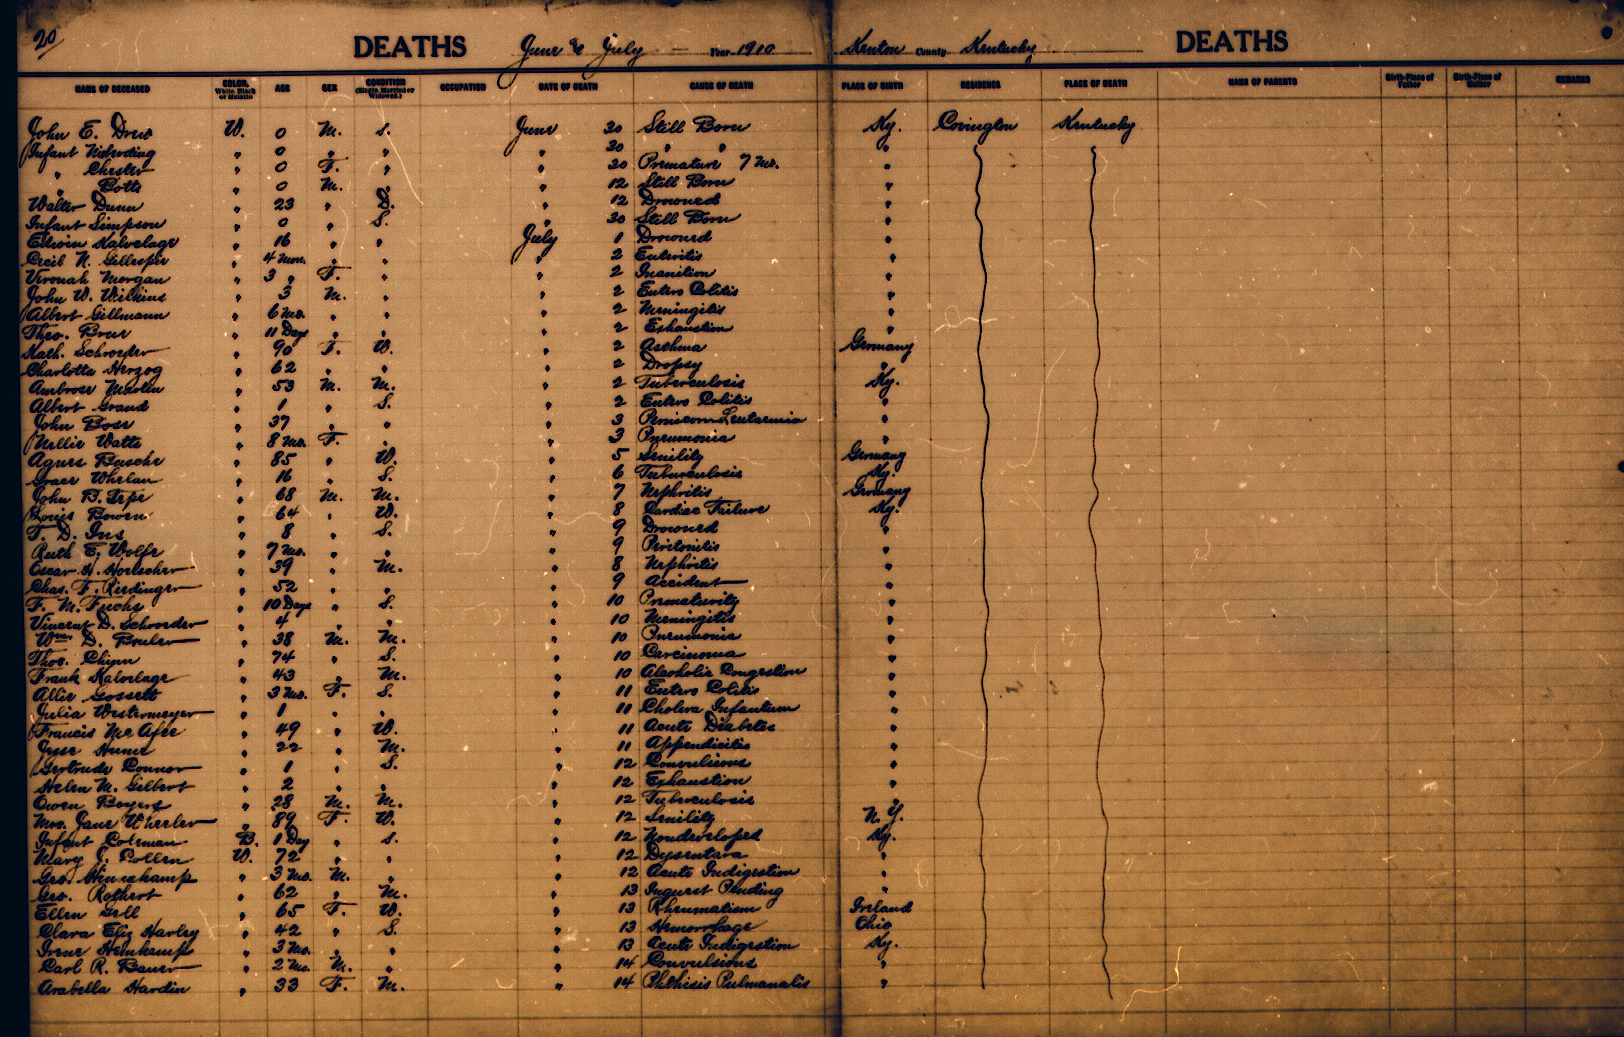 20 DEATHS June & July — Year 1910 Kenton County Kentucky DEATHS
NAME OF DECEASED COLOR, White, Black or Mulatto AGE SEX CONDITION (Single, Married or Widowed.) OCCUPATION DATE OF DEATH CAUSE OF DEATH PLACE OF BIRTH RESIDENCE PLACE OF DEATH NAME OF PARENTS Birth-Place of Father Birth-Place of Mother REMARKS
John E. Drew W. 0 M. S. June 30 Still Born Ky. Covington Kentucky
Infant " 0 " " " 30 " " "
" Chester " 0 F. " " 20 Premature 7 Mo. "
" Botts " 0 M. " " 12 Still Born "
Walter Dunn " 23 " D. " 12 Drowned "
Infant Simpson " 0 " S. " 30 Still Born "
Edwin Kalvelage " 16 " " July 1 Drowned "
Cecil N. Gillespie " 4 Mon. " " " 2 Enteritis "
Veronah Morgan " 3 " F. " " 2 Inanition "
John W. Wilkins " 3 M. " " 2 Entero Colitis "
Albert Gillmann " 6 Mo. " " " 2 Meningitis "
Theo. Brue " 11 Days " " " 2 Exhaustion "
Kath. Schroeder " 90 F. W. " 2 Asthma Germany
Charlotta Herzog " 62 " " " 2 Dropsy "
Ambrose Martin " 53 M. M. " 2 Tuberculosis Ky.
Albert Grand " 1 " S. " 2 Entero Colitis "
John Bose " 37 " " " 3 "
Nellie Watts " 8 Mo. F. " " 3 Pneumonia "
Agnes Busche " 85 " W. " 5 Senility Germany
Grace Whelan " 16 " S. " 6 Tuberculosis Ky.
John B. Erpe " 68 M. M. " 7 Nephritis Germany
Louis Bowen " 64 " W. " 8 Cardiac Failure Ky.
T. D. Ins " 8 " S. " 9 Drowned "
Ruth E. Wolfe " 7 Mo. " " " 9 Peritonitis "
Oscar H. Hoelscher " 39 " M. " 8 Nephritis "
Chas. F. Riedinger " 52 " " " 9 Accident "
F. M. Fuchs " 10 Days " S. " 10 Prematurity "
Vincent D. Schroeder " 4 " " " 10 Meningitis "
Wm. D. Boulew " 38 M. M. " 10 Pneumonia "
Thos. Chipn " 74 " S. " 10 Carcinoma "
Frank Kalvelage " 43 " M. " 10 Alcoholic Congestion "
Allie Gossett " 3 Mo. F. S. " 11 Entero Colitis "
Julia Westermeyer " 1 " " " 11 Cholera Infantum "
Francis McAfee " 49 " W. " 11 Acute Diabetes "
Jesse Hume " 22 " M. " 11 Appendicitis "
Gertrude Connor " 1 " S. " 12 Convulsions "
Helen M. Gilbert " 2 " " " 12 Exhaustion "
Owen Boyers " 28 M. M. " 12 Tuberculosis "
Mrs. Jane Wheeler " 89 F. W. " 12 Senility N. Y.
Infant Coleman B. 1 Day " S. " 12 Nondeveloped Ky.
Mary J. Pollen W. 72 " " " 12 Dysentara "
Geo. " 3 Mo. M. " " 12 Acute Indigestion "
Geo. Rothert " 62 " M. " 13 "
Ellen Gell " 65 F. W. " 13 Rheumatism Ireland
Clara Eliz Harley " 42 " S. " 13 Hemorrhage Ohio
Irene Heimkamp " 3 Mo. " " " 13 Acute Indigestion Ky.
Carl R. Bauer " 2 Mo. M. " " 14 Convulsions "
Arabella Hardin " 33 F. M. " 14 Phthisis Pulmanalis "